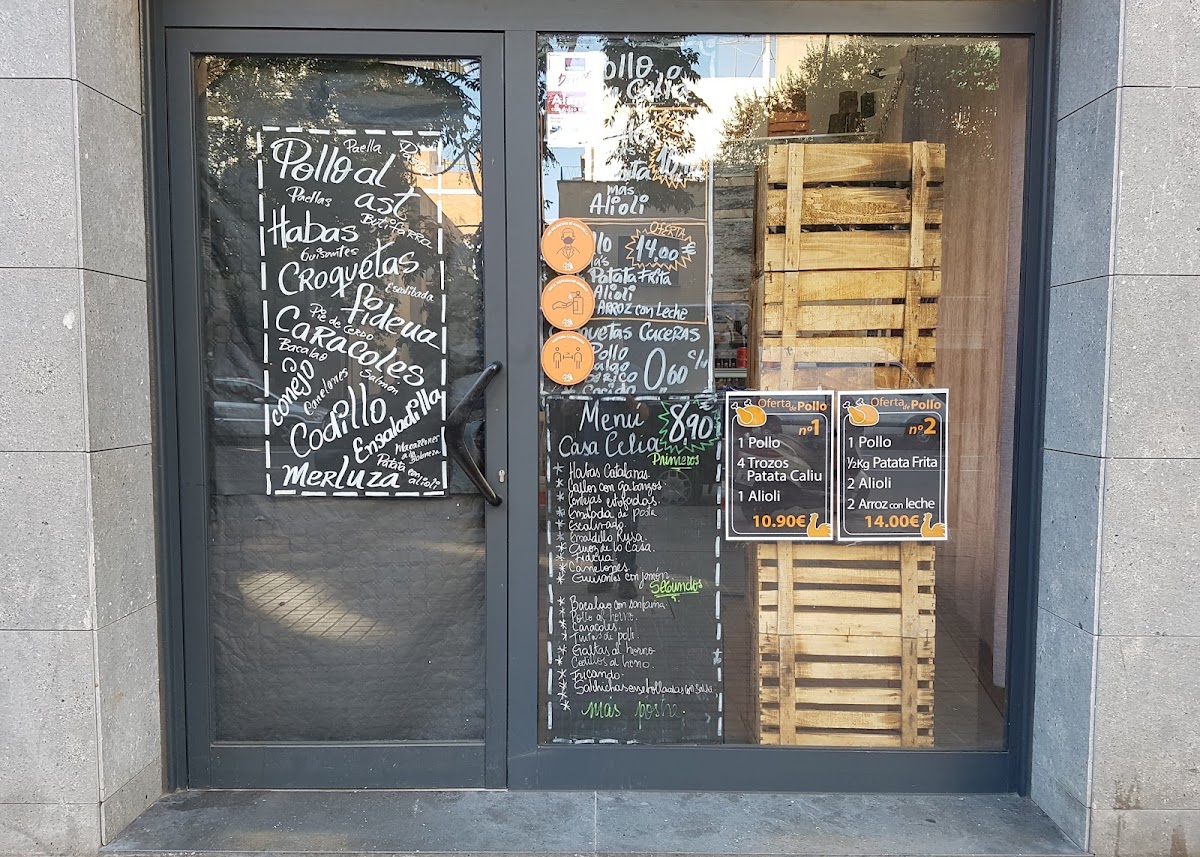 Paella
Pollo al
ast
Paellas
Butifarra
Habas
Guisantes
Croquetas
Escalibada
fideua
Pie de Cerdo
Caracoles
Bacalao
Salmon
Conejo
Canelones
Codillo
Ensaladilla
Macarrones
a la Boloñesa
Patata con
alioli
Merluza
Pollo
Celia
mas
Alioli
OFERTA
14,00€
Patata Frita
Alioli
Arroz con Leche
Caseras
Pollo
0,60 c/u
Cocido
Menú 8,90
Casa Celia
Primeros
* Habas Catalanas
* Callos con Garbanzos
* Lentejas estofadas.
* Ensalada de pasta
* Escalivada.
* Ensaldilla Rusa.
* Arroz de la Casa.
* Fideua
* Canelones
* Guisantes con jamón
Segundos
* Bacalao con sanfaina
* Pollo al horno.
* Caracoles.
* Galtas al horno
* Codillos al horno.
* Fricando.
mas postre
Oferta de Pollo
nº1
1 Pollo
4 Trozos
Patata Caliu
1 Alioli
10.90€
Oferta de Pollo
nº2
1 Pollo
½Kg Patata Frita
2 Alioli
2 Arroz con leche
14.00€